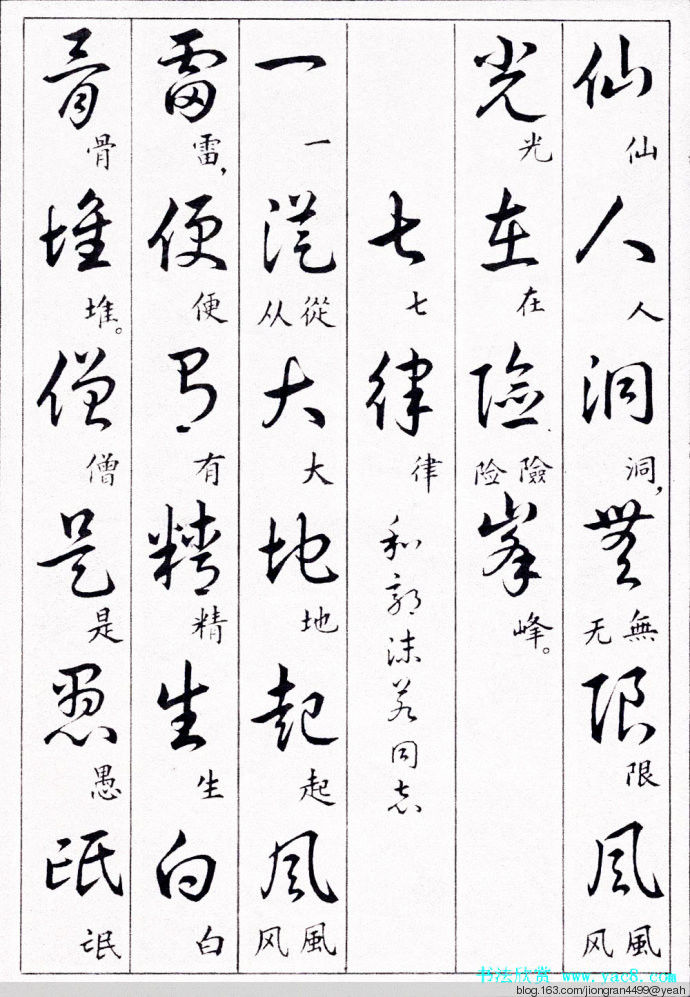 仙人洞無限風
仙人洞，無无限風风
光在險峯
光在險险峰。
七律和郭沫若同志
七律
一從大地起風
一從从大地起風风
雷便有精生白
雷，便有精生白
骨堆僧是愚氓
骨堆。僧是愚氓
书法欣赏 www.yac8.com
blog.163.com/jiongran4499@yeah